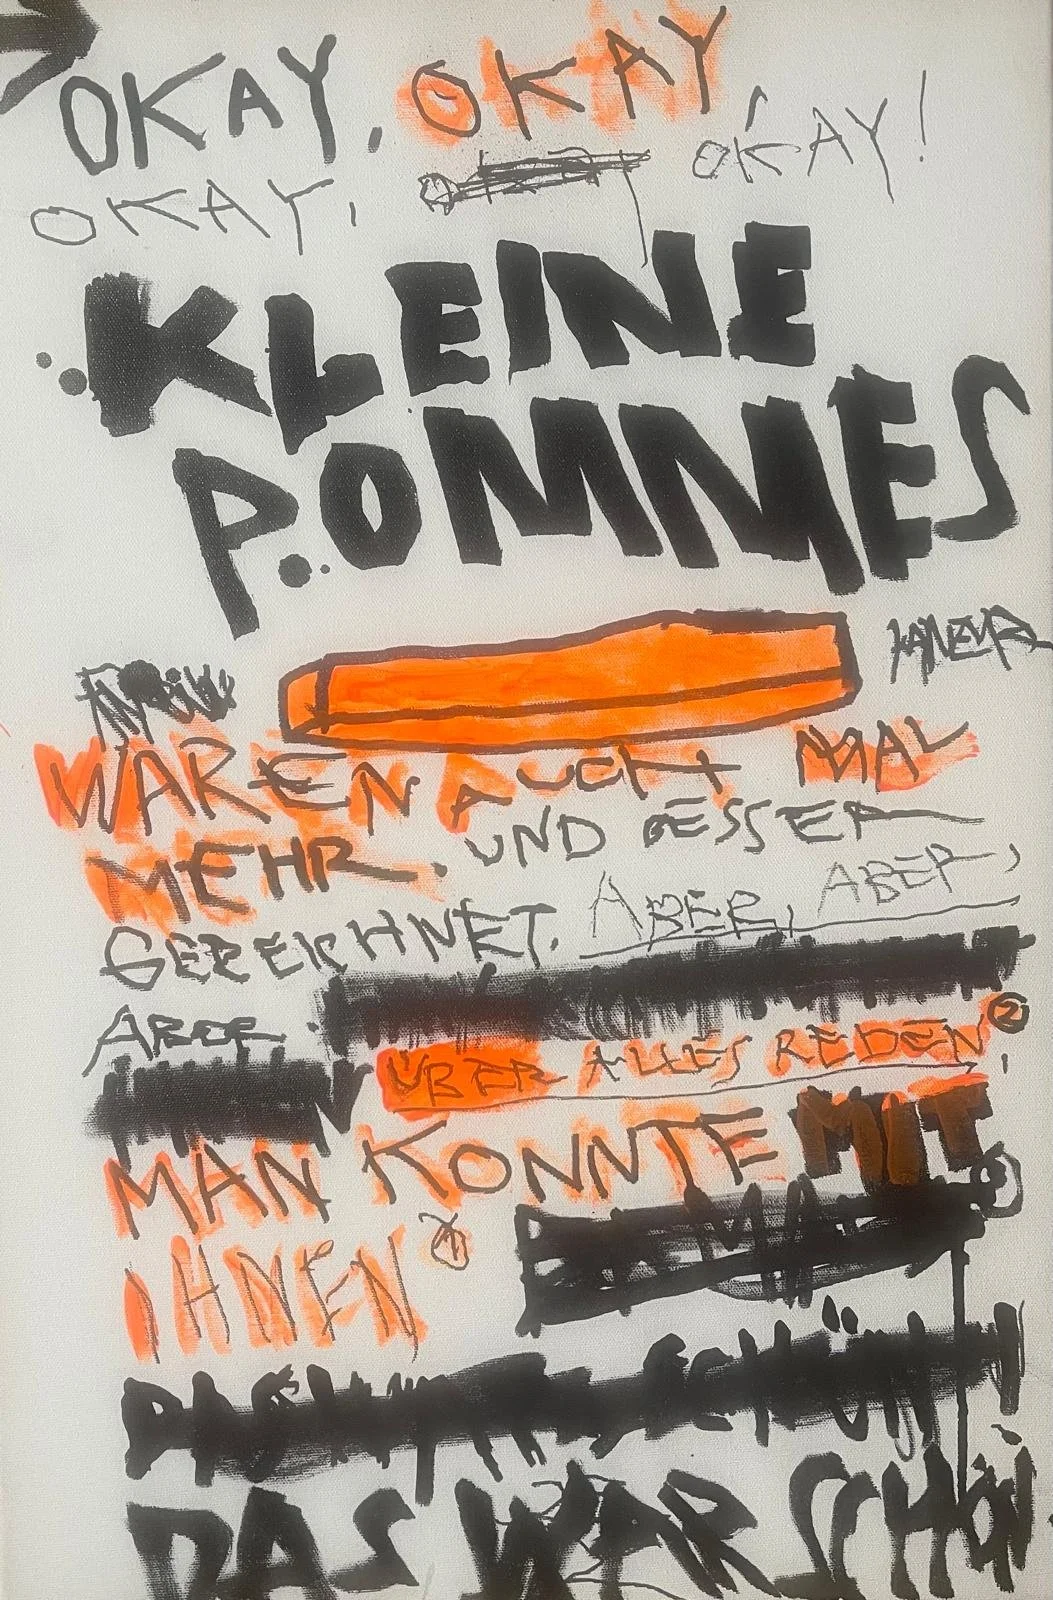 OKAY, OKAY,
OKAY, OKAY OKAY!
KLEINE
POMMES
WAREN AUCH MAL
MEHR. UND BESSER
GEZEICHNET. ABER, ABER,
ABER
ÜBER ALLES REDEN 2
MAN KONNTE MIT
IHNEN
DAS WAR SCHÖN
DAS WAR SCHÖN